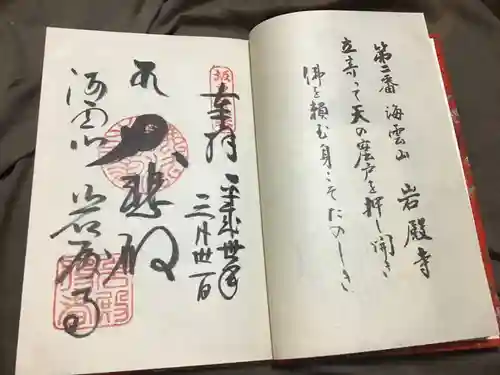 第二番 海雲山 岩殿寺
立寄って天の岩戸を押し開き
佛を頼む身こそたのしき
奉拝
平成卅年
三月卅一日
大悲殿
海雲山
岩殿寺